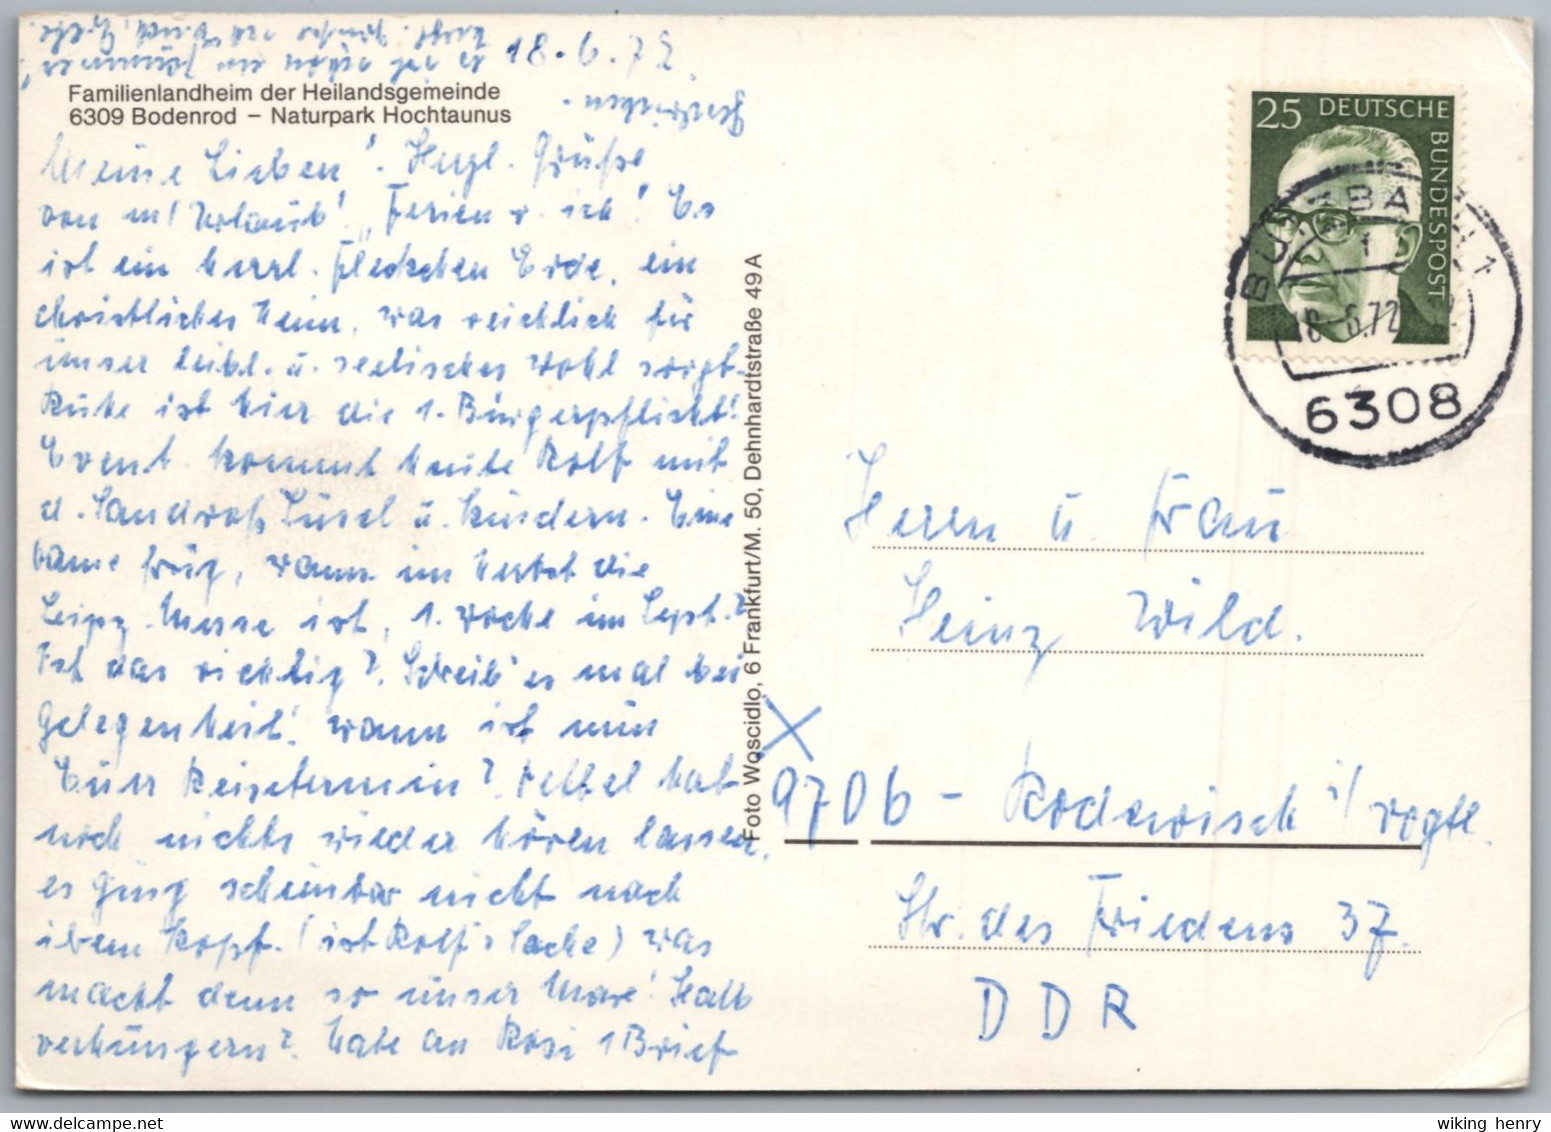 18.6.72
Familienlandheim der Heilandsgemeinde
6309 Bodenrod – Naturpark Hochtaunus
geschrieben.
Meine Lieben! Herzl. Grüße
von m/ Urlaub! „Ferien v. ich! Es
ist ein herrl. Fleckchen Erde, ein
christliches Heim, was reichlich für
unser leibl. u. seelisches Wohl sorgt.
Ruhe ist hier die 1. Bürgerpflicht!
Event. kommt heute Rolf mit
d. Kindern. Eine
Dame frug, wann im Herbst die
Leipz. Messe ist, 1. Woche im Sept.?
Ist das richtig? Schreib' es mal bei
Gelegenheit! Wann ist nun
Euer Reisetermin? hat
noch nichts wieder hören lassen,
es ging scheinbar nicht nach
ihrem Kopf. (ist Rolf's Sache) Was
macht denn so unser Halb
verhungern? Habe an Rosi 1 Brief
Foto Woscidlo, 6 Frankfurt/M. 50, Dehnhardtstraße 49 A
25 DEUTSCHE
BUNDESPOST
BUTZBACH 1
18.-6.72
6308
Herrn u. Frau
Heinz Wild.
9706 - Rodewisch i/ Vogtl.
Str. des Friedens 37.
DDR
wiking henry